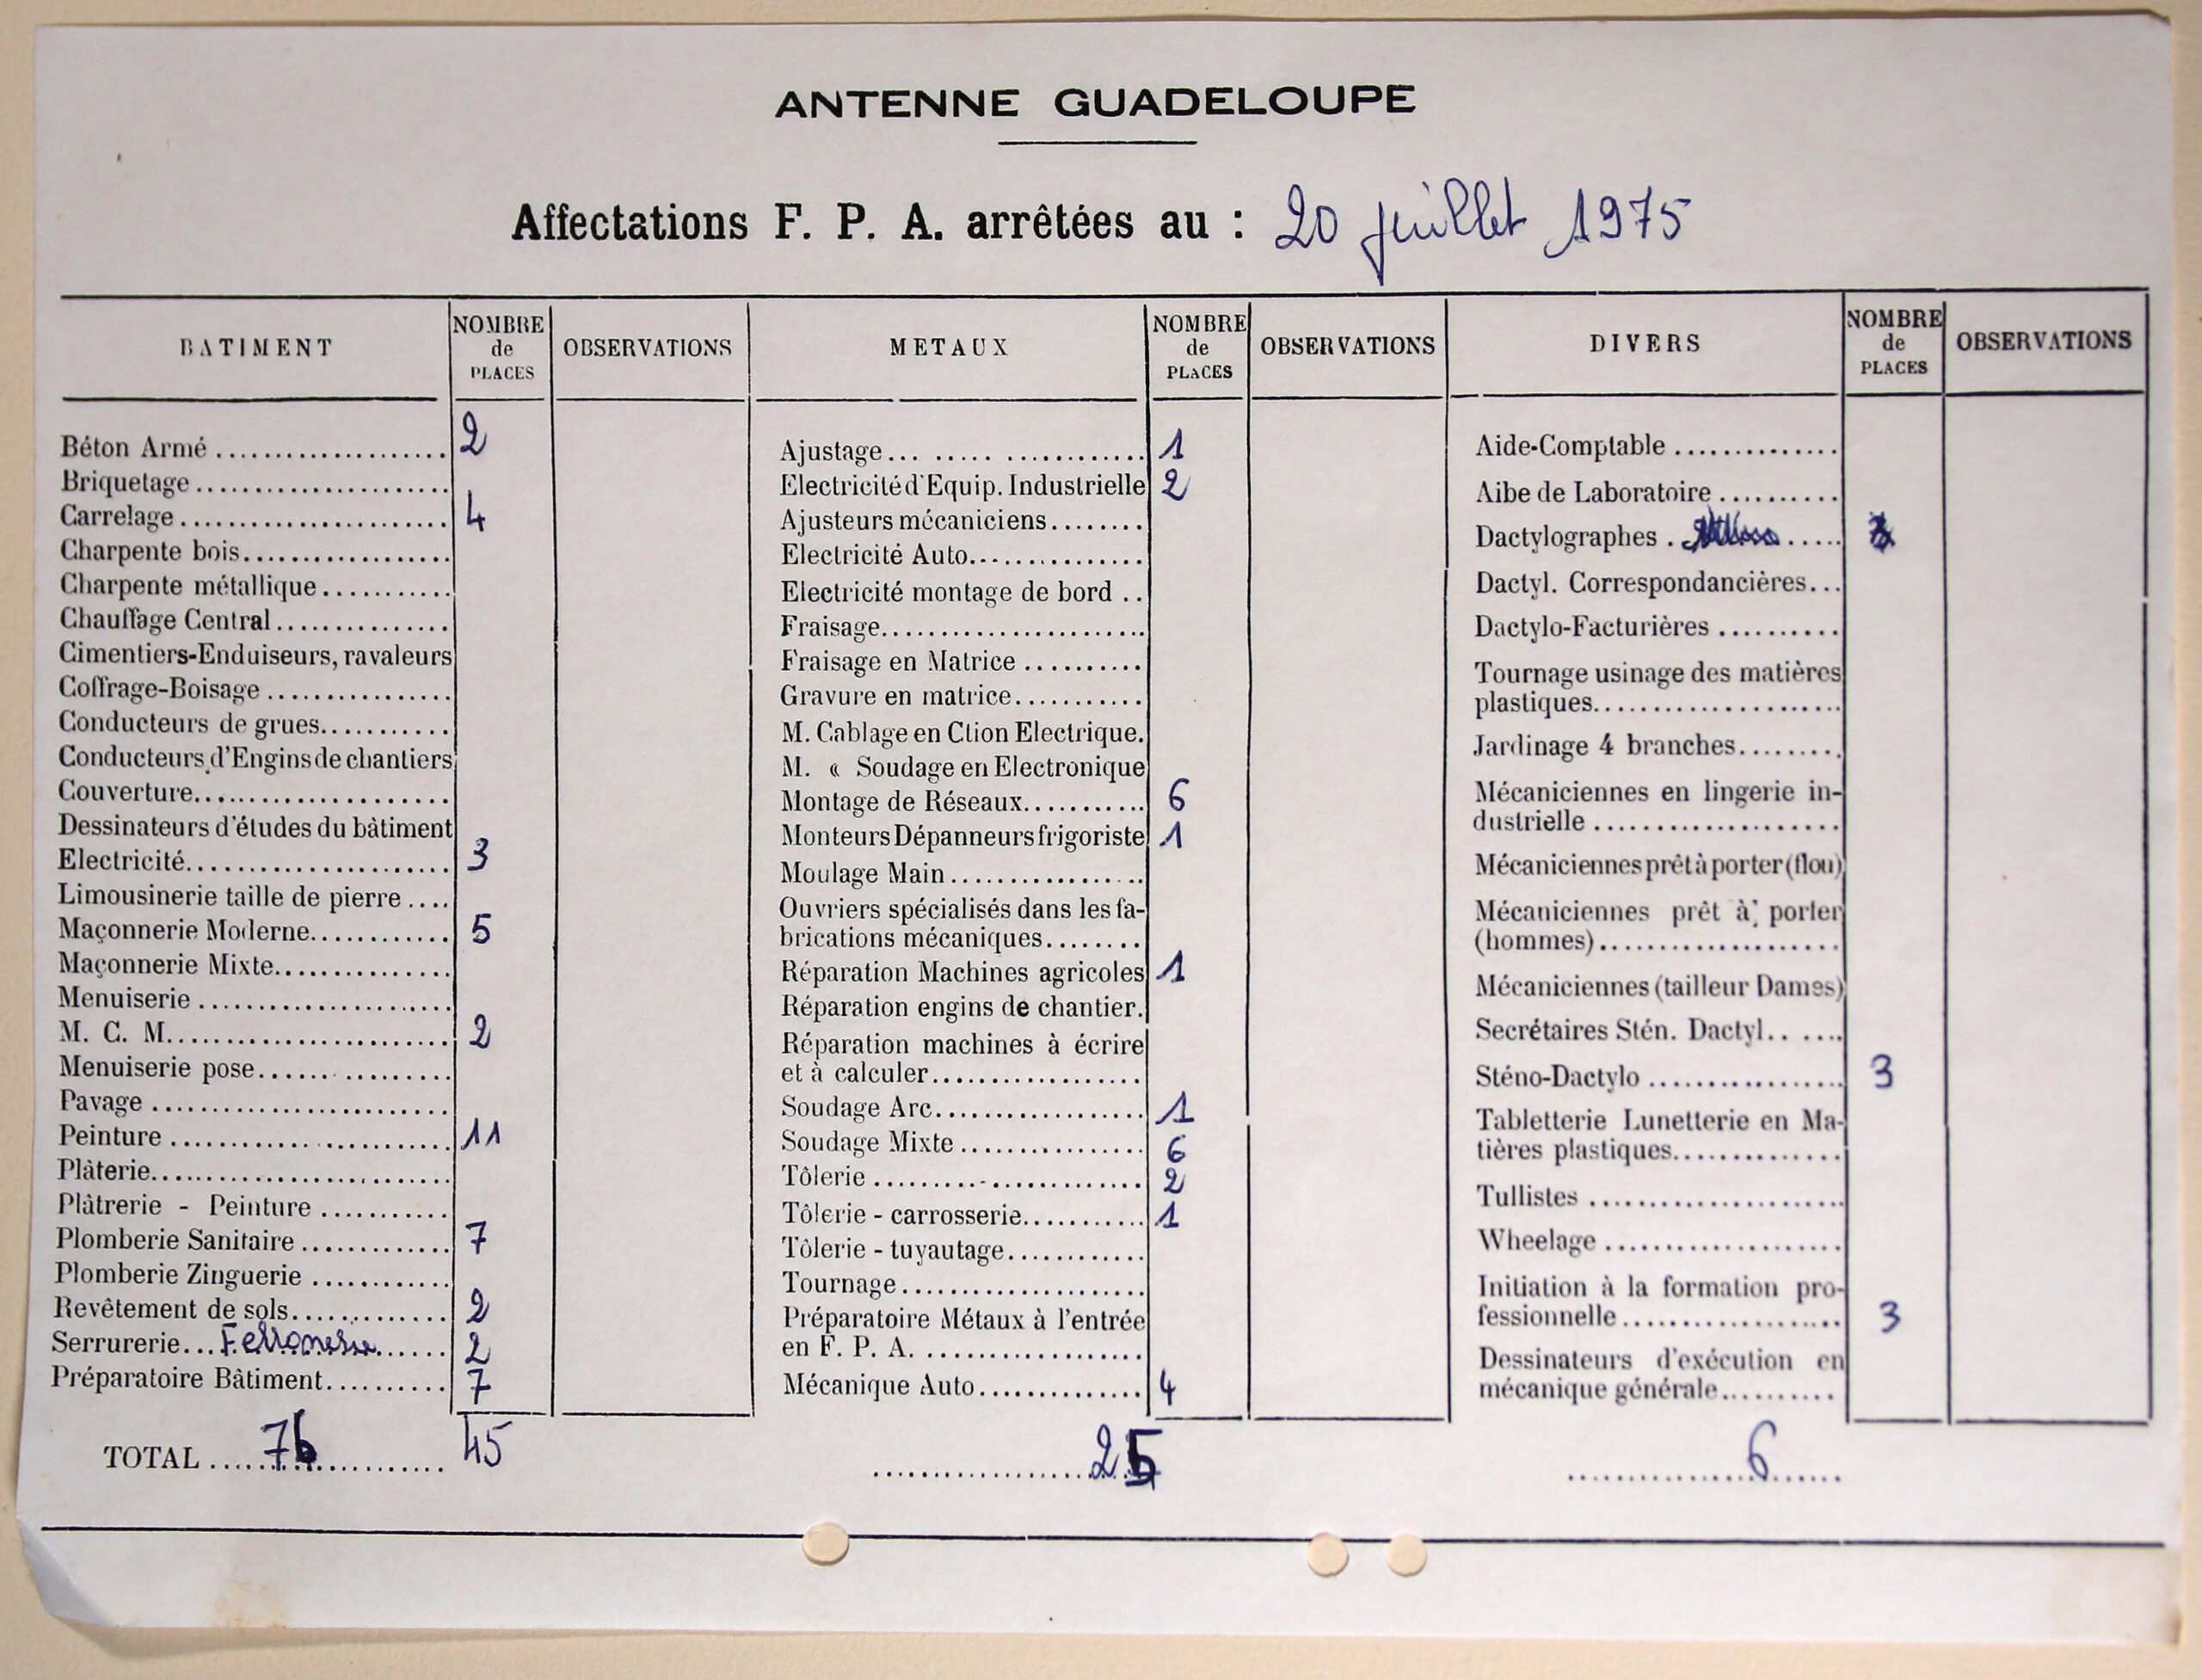 ANTENNE GUADELOUPE
Affectations F. P. A. arrêtées au : 20 juillet 1975
BATIMENT
NOMBRE
de
PLACES
OBSERVATIONS
Béton Armé .................... 2
Briquetage ......................
Carrelage ........................ 4
Charpente bois..................
Charpente métallique ...........
Chauffage Central ...............
Cimentiers-Enduiseurs, ravaleurs
Coffrage-Boisage ................
Conducteurs de grues...........
Conducteurs d'Engins de chantiers
Couverture.......................
Dessinateurs d'études du bâtiment
Electricité........................ 3
Limousinerie taille de pierre ....
Maçonnerie Moderne............ 5
Maçonnerie Mixte...............
Menuiserie ......................
M. C. M.......................... 2
Menuiserie pose.................
Pavage ..........................
Peinture ......................... 11
Plâterie...........................
Plâtrerie - Peinture ...........
Plomberie Sanitaire ............. 7
Plomberie Zinguerie ............
Revêtement de sols.............. 2
Serrurerie... Ferronnerie ...... 2
Préparatoire Bâtiment.......... 7
TOTAL .... 76 ............ 45
METAUX
NOMBRE
de
PLACES
OBSERVATIONS
Ajustage... ..... ............. 1
Electricité d'Equip. Industrielle 2
Ajusteurs mécaniciens........
Electricité Auto...............
Electricité montage de bord ..
Fraisage.......................
Fraisage en Matrice ..........
Gravure en matrice...........
M. Cablage en Ction Electrique.
M. « Soudage en Electronique
Montage de Réseaux........... 6
Monteurs Dépanneurs frigoriste 1
Moulage Main .................
Ouvriers spécialisés dans les fa-
brications mécaniques........
Réparation Machines agricoles 1
Réparation engins de chantier.
Réparation machines à écrire
et à calculer...................
Soudage Arc................... 1
Soudage Mixte ................ 6
Tôlerie ......................... 2
Tôlerie - carrosserie........... 1
Tôlerie - tuyautage............
Tournage.......................
Préparatoire Métaux à l'entrée
en F. P. A. ....................
Mécanique Auto............... 4
.................... 25
DIVERS
NOMBRE
de
PLACES
OBSERVATIONS
Aide-Comptable ..............
Aibe de Laboratoire ..........
Dactylographes . .....
Dactyl. Correspondancières...
Dactylo-Facturières ..........
Tournage usinage des matières
plastiques.....................
Jardinage 4 branches.........
Mécaniciennes en lingerie in-
dustrielle .....................
Mécaniciennes prêt à porter (flou)
Mécaniciennes prêt à porter
(hommes).....................
Mécaniciennes (tailleur Dames)
Secrétaires Stén. Dactyl.. ....
Sténo-Dactylo ................. 3
Tabletterie Lunetterie en Ma-
tières plastiques...............
Tullistes ......................
Wheelage .....................
Initiation à la formation pro-
fessionnelle ................... 3
Dessinateurs d'exécution en
mécanique générale..........
................. 6 ......